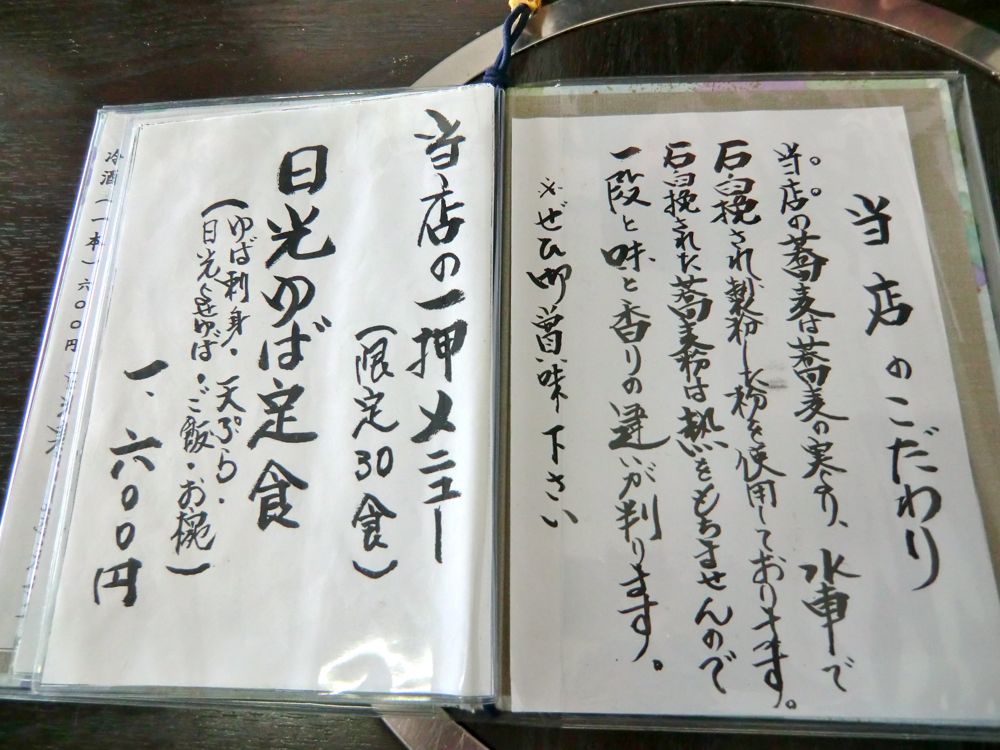 当店のこだわり
当。店。の蕎麦は蕎麦の実より、水車で
石臼挽され製粉した粉を使用しております。
石臼挽された蕎麦粉は熱をもちませんので
一段と味と香りの違いが判ります。
※ぜひ御賞味下さい
当店の一押メニュー
(限定30食)
日光ゆば定食
(ゆば刺身・天ぷら・
日光巻ゆば・ご飯・お椀)
一、六〇〇円
冷酒(一本)六〇〇円